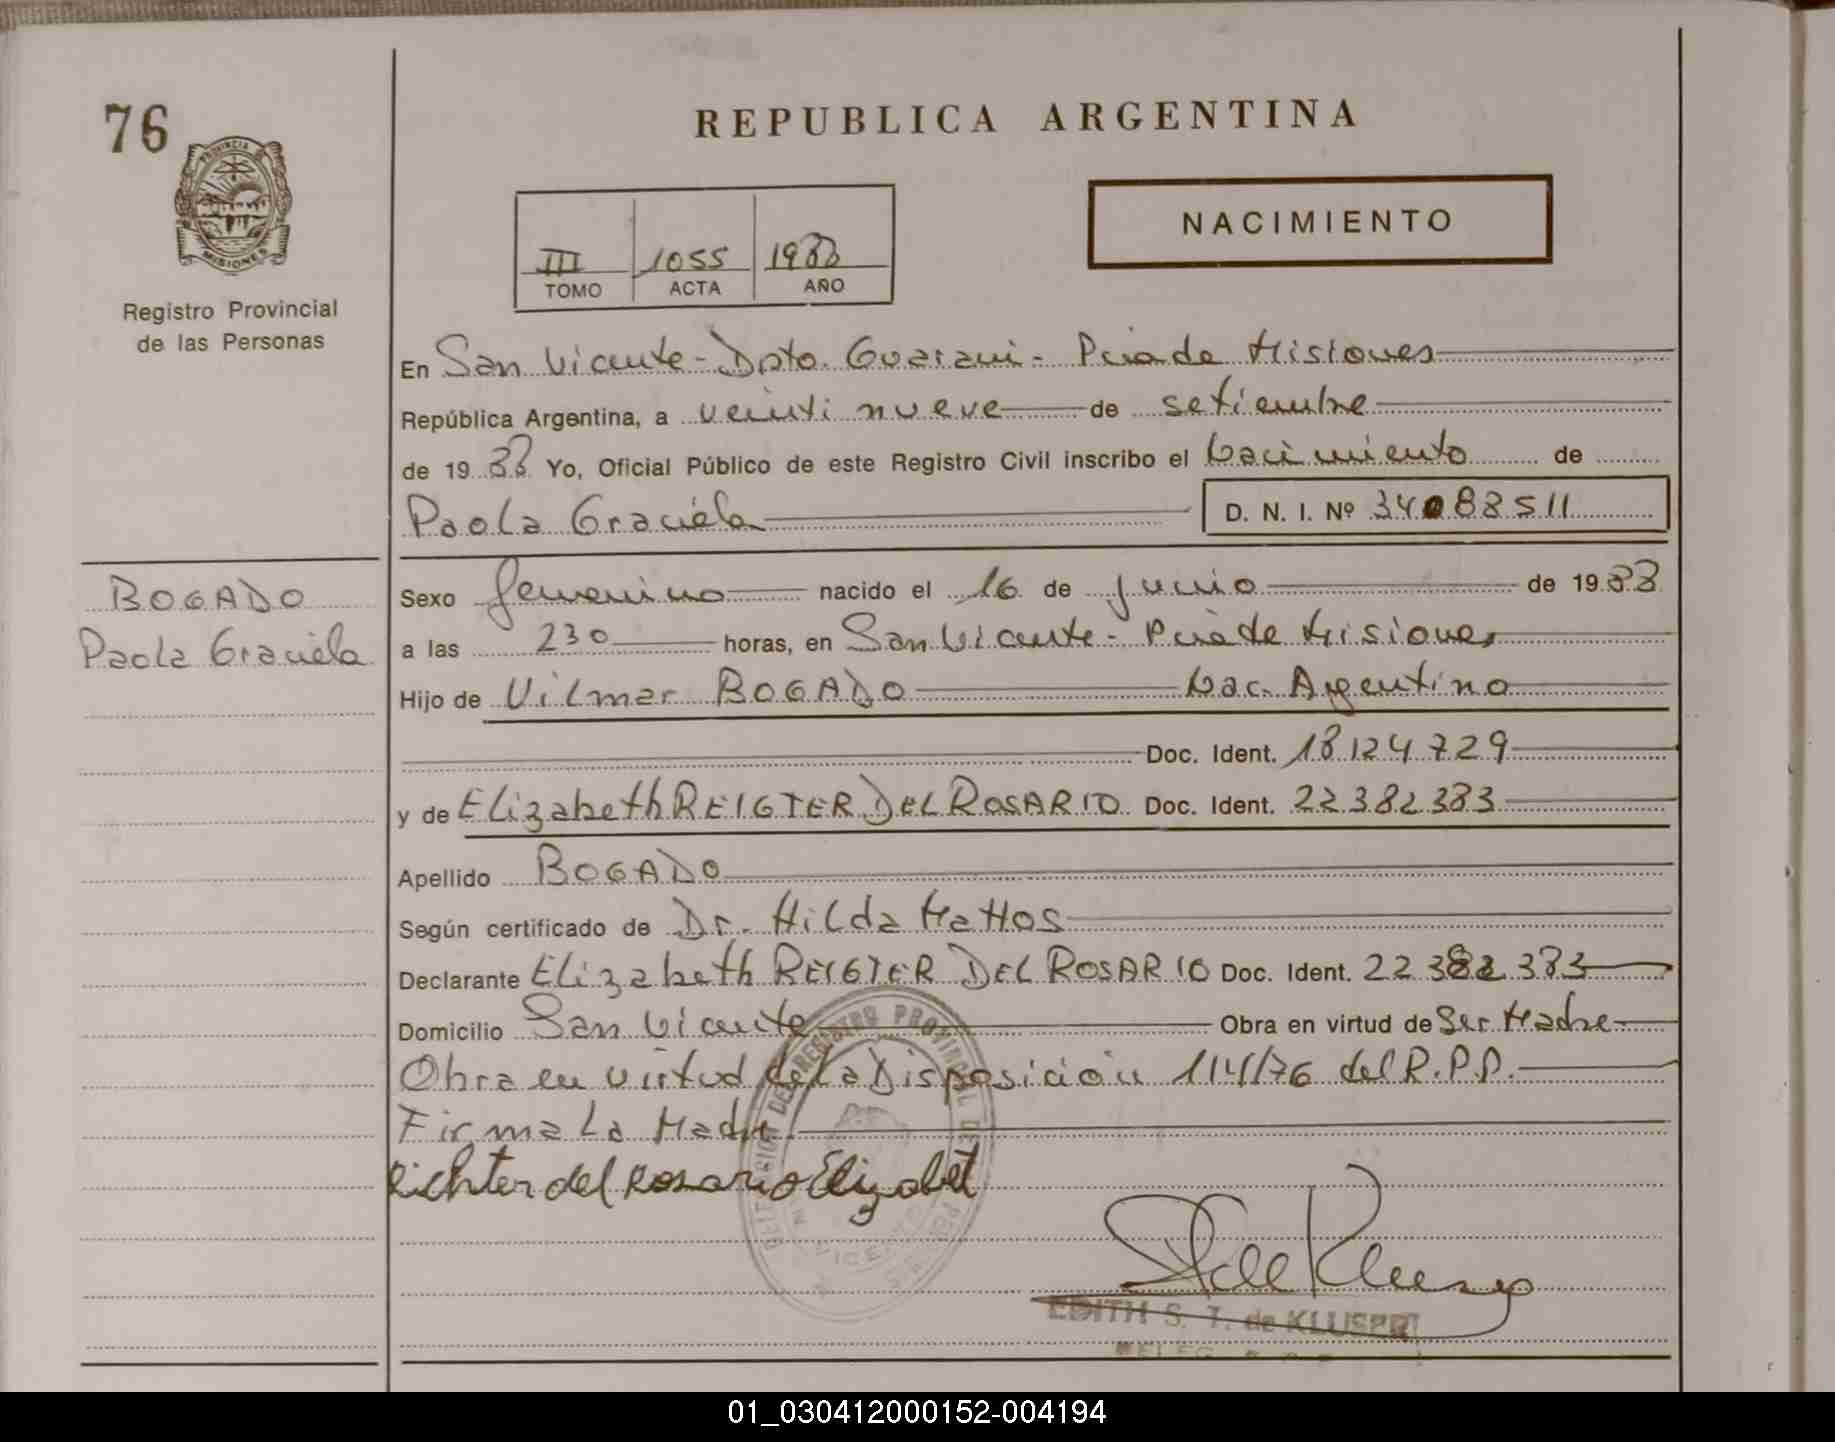 76
PROVINCIA DE
MISIONES
Registro Provincial
de las Personas
REPUBLICA ARGENTINA
NACIMIENTO
III 1055 1988
TOMO ACTA AÑO
En San Vicente - Dpto. Guarani - Pcia de Misiones
República Argentina, a veinti nueve de setiembre
de 19 88 Yo, Oficial Público de este Registro Civil inscribo el Nacimiento de
Paola Graciela D. N. I. Nº 34088511
BOGADO
Paola Graciela
Sexo femenino nacido el 16 de junio de 19 88
a las 230 horas, en San Vicente - Pcia de Misiones
Hijo de Vilmar BOGADO Nac. Argentino
Doc. Ident. 18.124.729
y de Elizabeth REIGTER DEL ROSARIO Doc. Ident. 22.382.383
Apellido BOGADO
Según certificado de Dr. Hilda Mattos
Declarante Elizabeth REIGTER DEL ROSARIO Doc. Ident. 22.382.383
Domicilio San Vicente Obra en virtud de Ser Madre
Obra en virtud de la Disposición 114/76 del R.P.P.
Firma La Madre
Richter del Rosario Elizabet
EDITH S. T. de
01_030412000152-004194